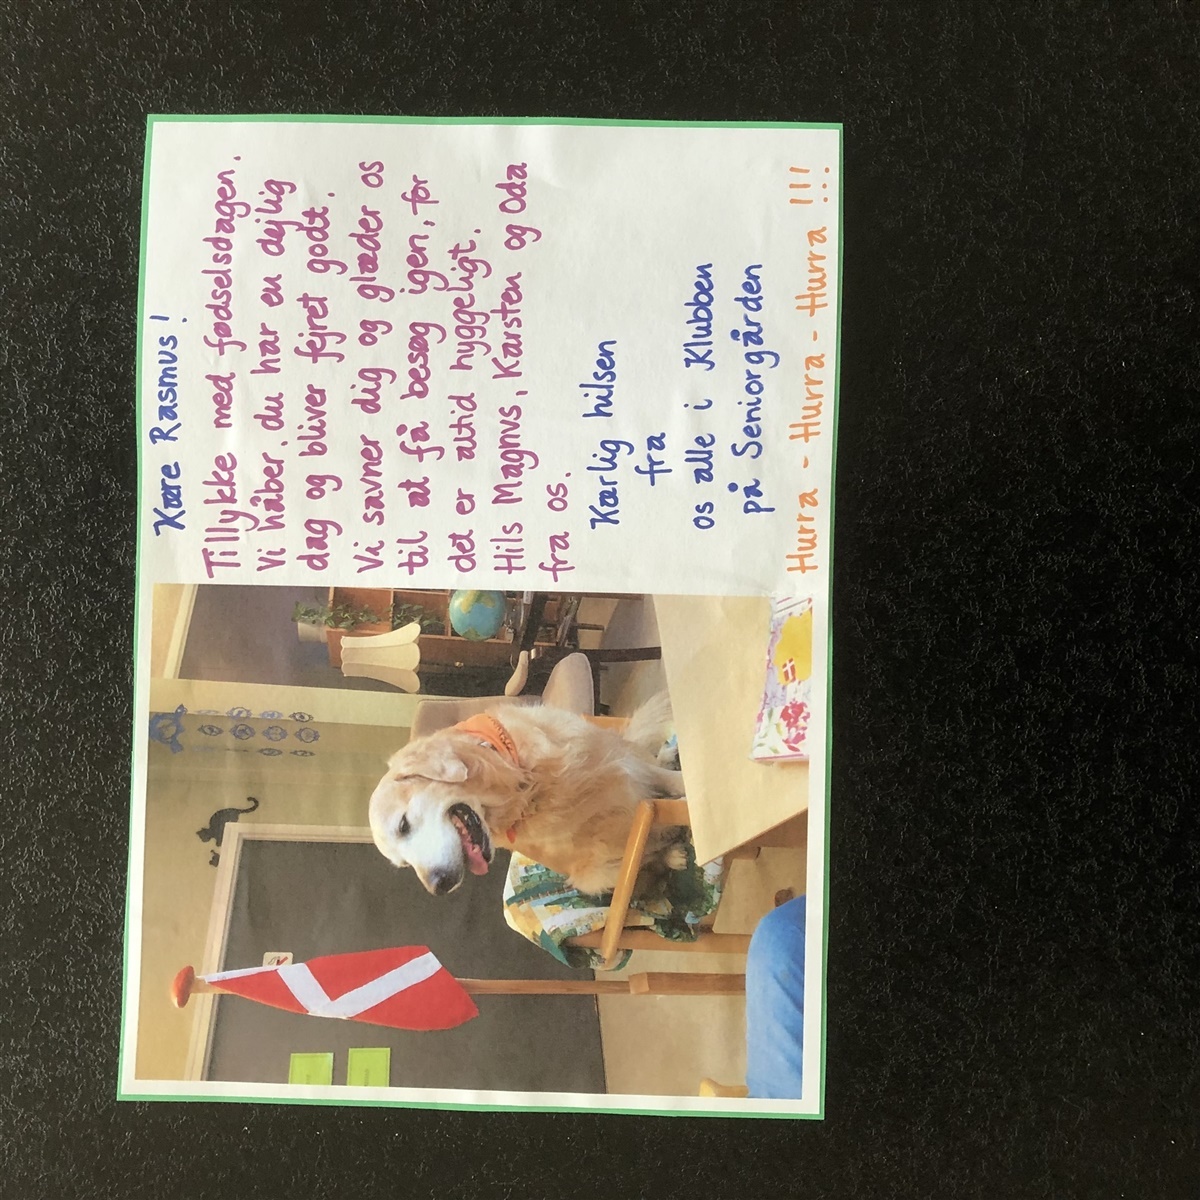 Kære Rasmus!
Tillykke med fødselsdagen.
Vi håber, du har en dejlig
dag og bliver fejret godt.
Vi savner dig og glæder os
til at få besøg igen, for
det er altid hyggeligt.
Hils Magnus, Karsten og Oda
fra os.
Kærlig hilsen
fra
os alle i Klubben
på Seniorgården
Hurra - Hurra - Hurra !!!